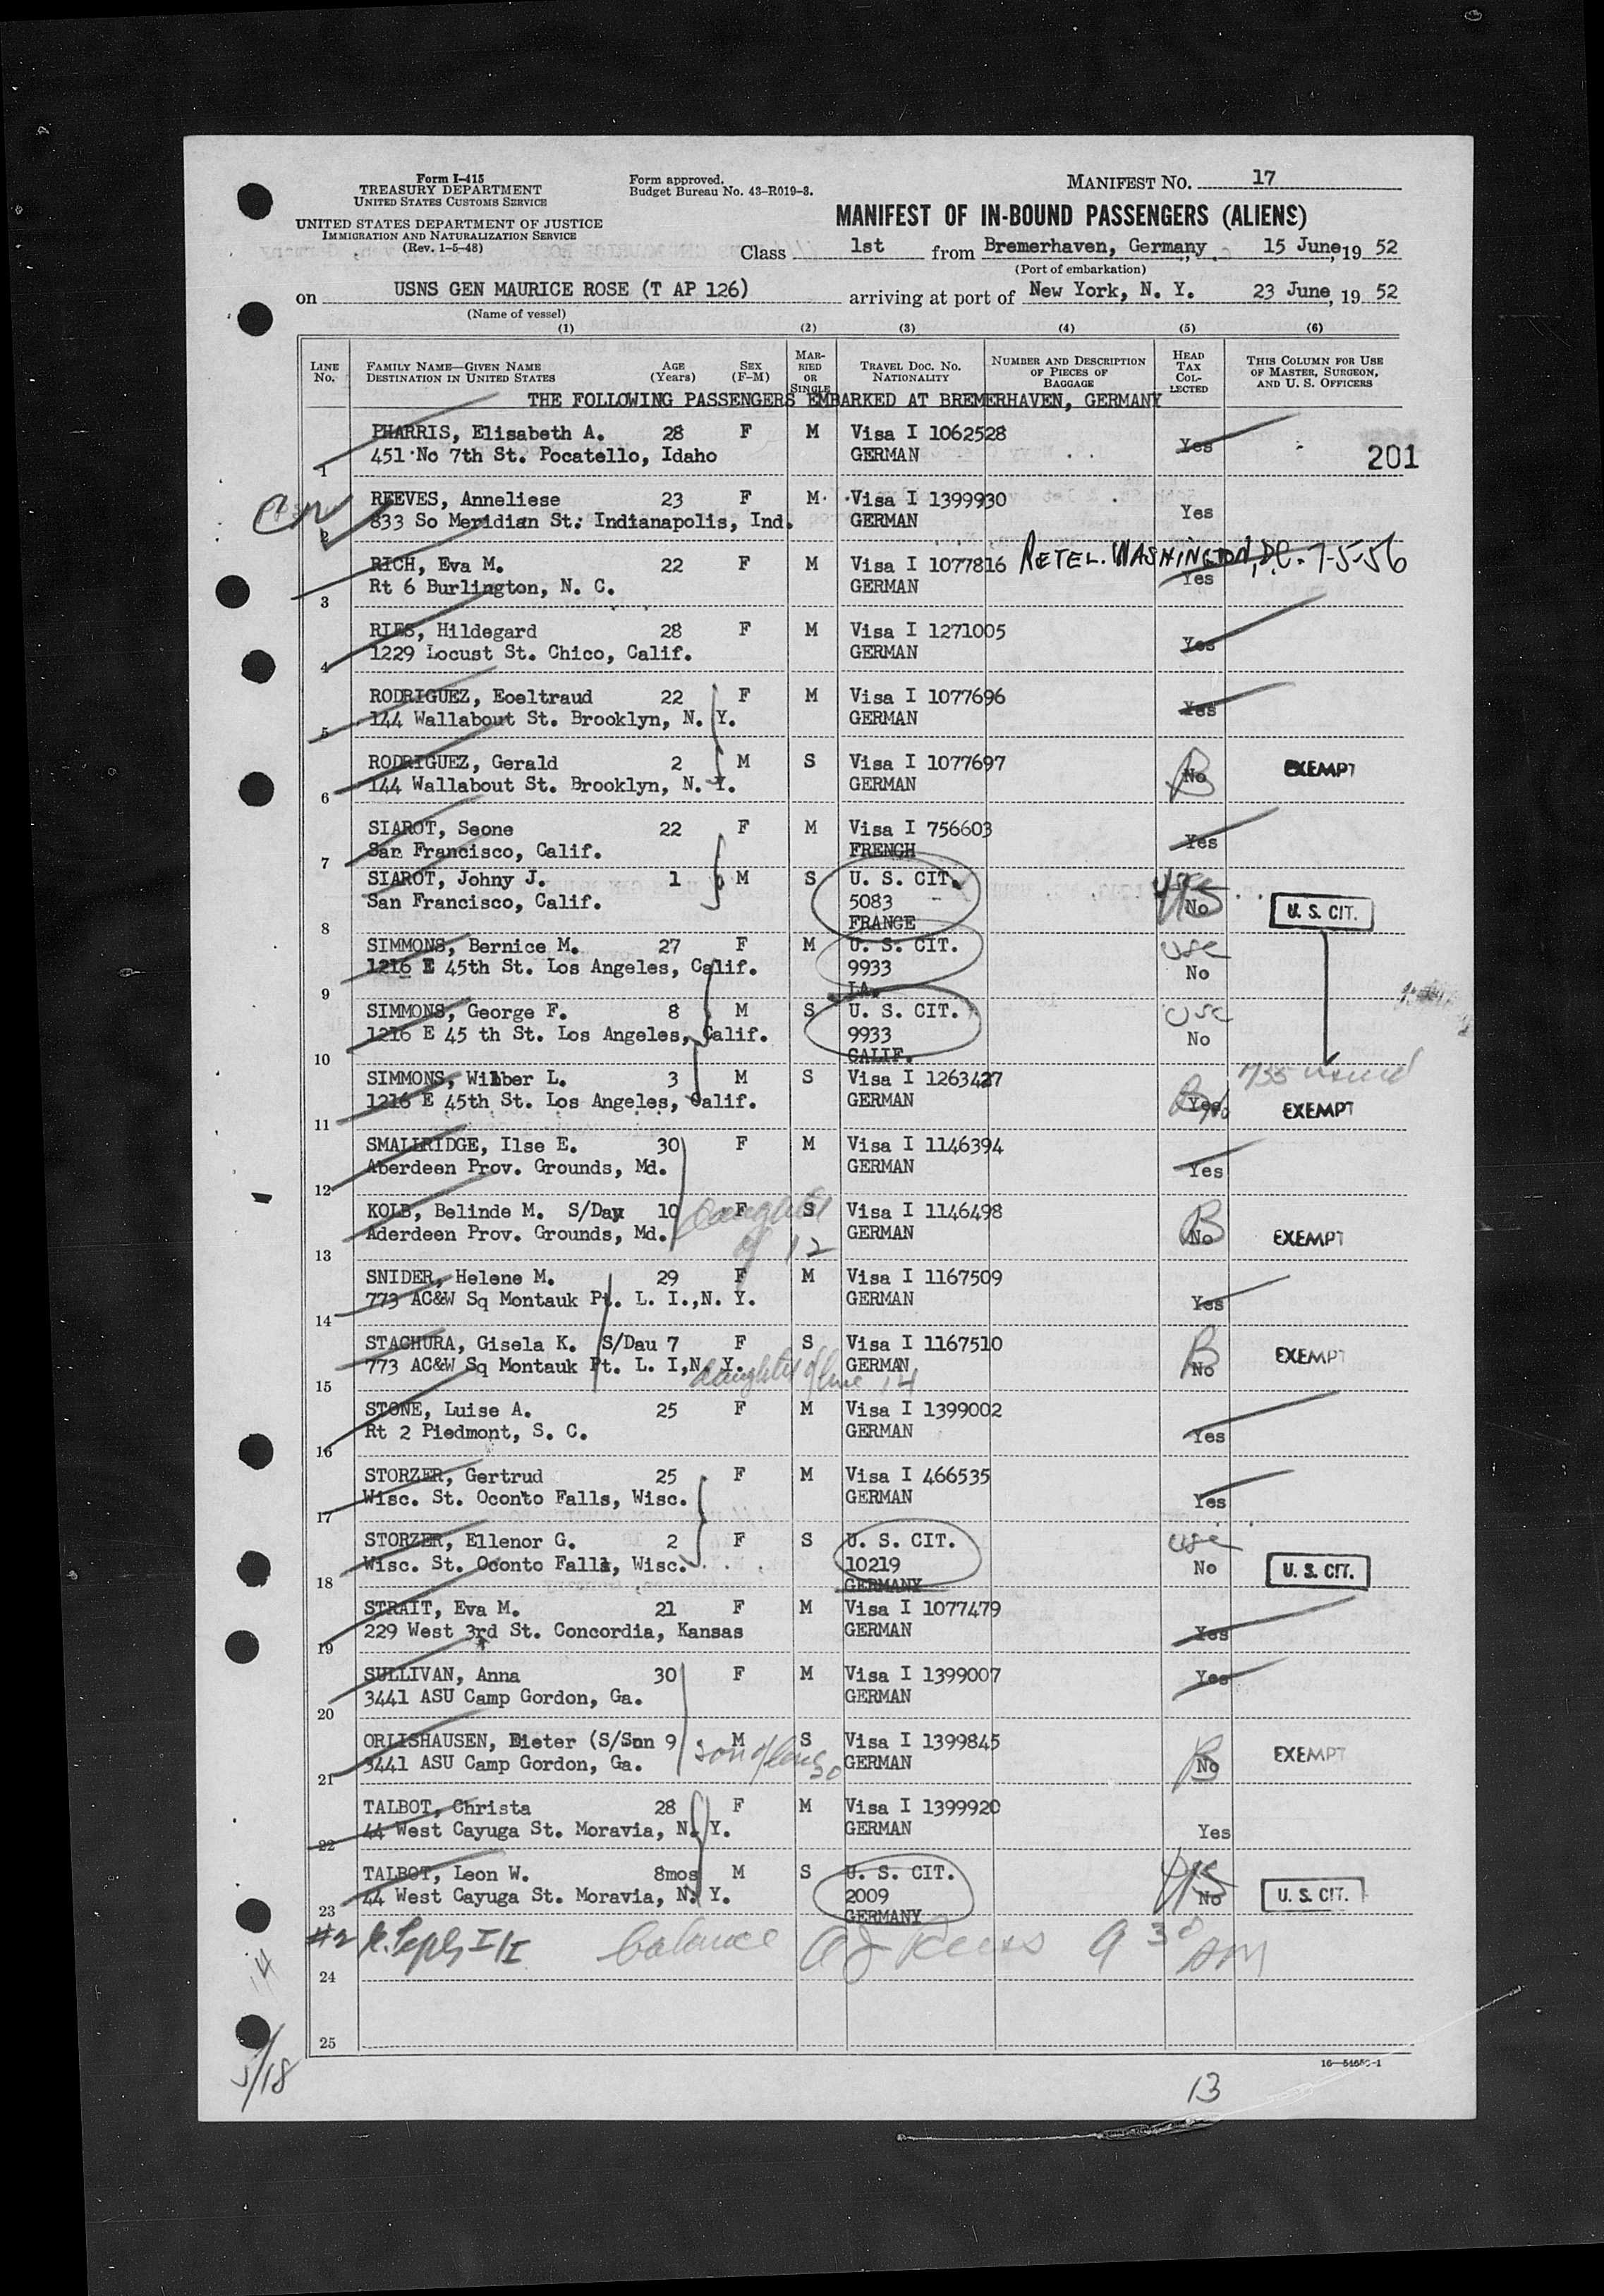 Form I-415
TREASURY DEPARTMENT
UNITED STATES CUSTOMS SERVICE
UNITED STATES DEPARTMENT OF JUSTICE
IMMIGRATION AND NATURALIZATION SERVICE
(Rev. 1-5-48)
Form approved.
Budget Bureau No. 43-R019-3.
MANIFEST NO. 17
MANIFEST OF IN-BOUND PASSENGERS (ALIENS)
Class 1st from Bremerhaven, Germany, 15 June, 19 52
(Port of embarkation)
on USNS GEN MAURICE ROSE (T AP 126) arriving at port of New York, N. Y. 23 June, 19 52
(Name of vessel)
(1) (2) (3) (4) (5) (6)
LINE No. FAMILY NAME—GIVEN NAME DESTINATION IN UNITED STATES AGE (Years) SEX (F-M) MARRIED OR SINGLE TRAVEL DOC. NO. NATIONALITY NUMBER AND DESCRIPTION OF PIECES OF BAGGAGE HEAD TAX COLLECTED THIS COLUMN FOR USE OF MASTER, SURGEON, AND U. S. OFFICERS
THE FOLLOWING PASSENGERS EMBARKED AT BREMERHAVEN, GERMANY
PHARRIS, Elisabeth A. 28 F M Visa I 1062528 Yes
1 451 No 7th St. Pocatello, Idaho GERMAN 201
REEVES, Anneliese 23 F M Visa I 1399930 Yes
2 833 So Meridian St. Indianapolis, Ind. GERMAN
RICH, Eva M. 22 F M Visa I 1077816 RETEL. WASHINGTON, D.C. 7-5-56 Yes
3 Rt 6 Burlington, N. C. GERMAN
RIES, Hildegard 28 F M Visa I 1271005 Yes
4 1229 Locust St. Chico, Calif. GERMAN
RODRIGUEZ, Eoeltraud 22 F M Visa I 1077696 Yes
5 144 Wallabout St. Brooklyn, N. Y. GERMAN
RODRIGUEZ, Gerald 2 M S Visa I 1077697 No EXEMPT
6 144 Wallabout St. Brooklyn, N. Y. GERMAN
SIAROT, Seone 22 F M Visa I 756603 Yes
7 San Francisco, Calif. FRENCH
SIAROT, Johny J. 1 M S U. S. CIT. usc
San Francisco, Calif. 5083 No U. S. CIT.
8 FRANCE
SIMMONS, Bernice M. 27 F M U. S. CIT. usc
1216 E 45th St. Los Angeles, Calif. 9933 No
9 LA.
SIMMONS, George F. 8 M S U. S. CIT. usc
1216 E 45 th St. Los Angeles, Calif. 9933 No
10 CALIF.
SIMMONS, Wilber L. 3 M S Visa I 1263427 Yes
11 1216 E 45th St. Los Angeles, Calif. GERMAN EXEMPT
SMALLRIDGE, Ilse E. 30 F M Visa I 1146394 Yes
12 Aberdeen Prov. Grounds, Md. GERMAN
KOLB, Belinde M. S/Dau 10 F S Visa I 1146498 B No EXEMPT
13 Aderdeen Prov. Grounds, Md. daughter of 12 GERMAN
SNIDER, Helene M. 29 F M Visa I 1167509 Yes
14 773 AC&W Sq Montauk Pt. L. I.,N. Y. GERMAN
STACHURA, Gisela K. S/Dau 7 F S Visa I 1167510 B No EXEMPT
15 773 AC&W Sq Montauk Pt. L. I,N. Y. daughter of line 14 GERMAN
STONE, Luise A. 25 F M Visa I 1399002 Yes
16 Rt 2 Piedmont, S. C. GERMAN
STORZER, Gertrud 25 F M Visa I 466535 Yes
17 Wisc. St. Oconto Falls, Wisc. GERMAN
STORZER, Ellenor G. 2 F S U. S. CIT. usc
Wisc. St. Oconto Falls, Wisc. 10219 No U. S. CIT.
18 GERMANY
STRAIT, Eva M. 21 F M Visa I 1077479 Yes
19 229 West 3rd St. Concordia, Kansas GERMAN
SULLIVAN, Anna 30 F M Visa I 1399007 Yes
20 3441 ASU Camp Gordon, Ga. GERMAN
ORLISHAUSEN, Dieter (S/Son 9 M S Visa I 1399845 No EXEMPT
21 3441 ASU Camp Gordon, Ga. son of line 20 GERMAN
TALBOT, Christa 28 F M Visa I 1399920 Yes
22 44 West Cayuga St. Moravia, N. Y. GERMAN
TALBOT, Leon W. 8mos M S U. S. CIT.
44 West Cayuga St. Moravia, N. Y. 2009 No U. S. CIT.
23 GERMANY
#2 balance 9 30 AM
24
25
5/18
16—54650-1
13